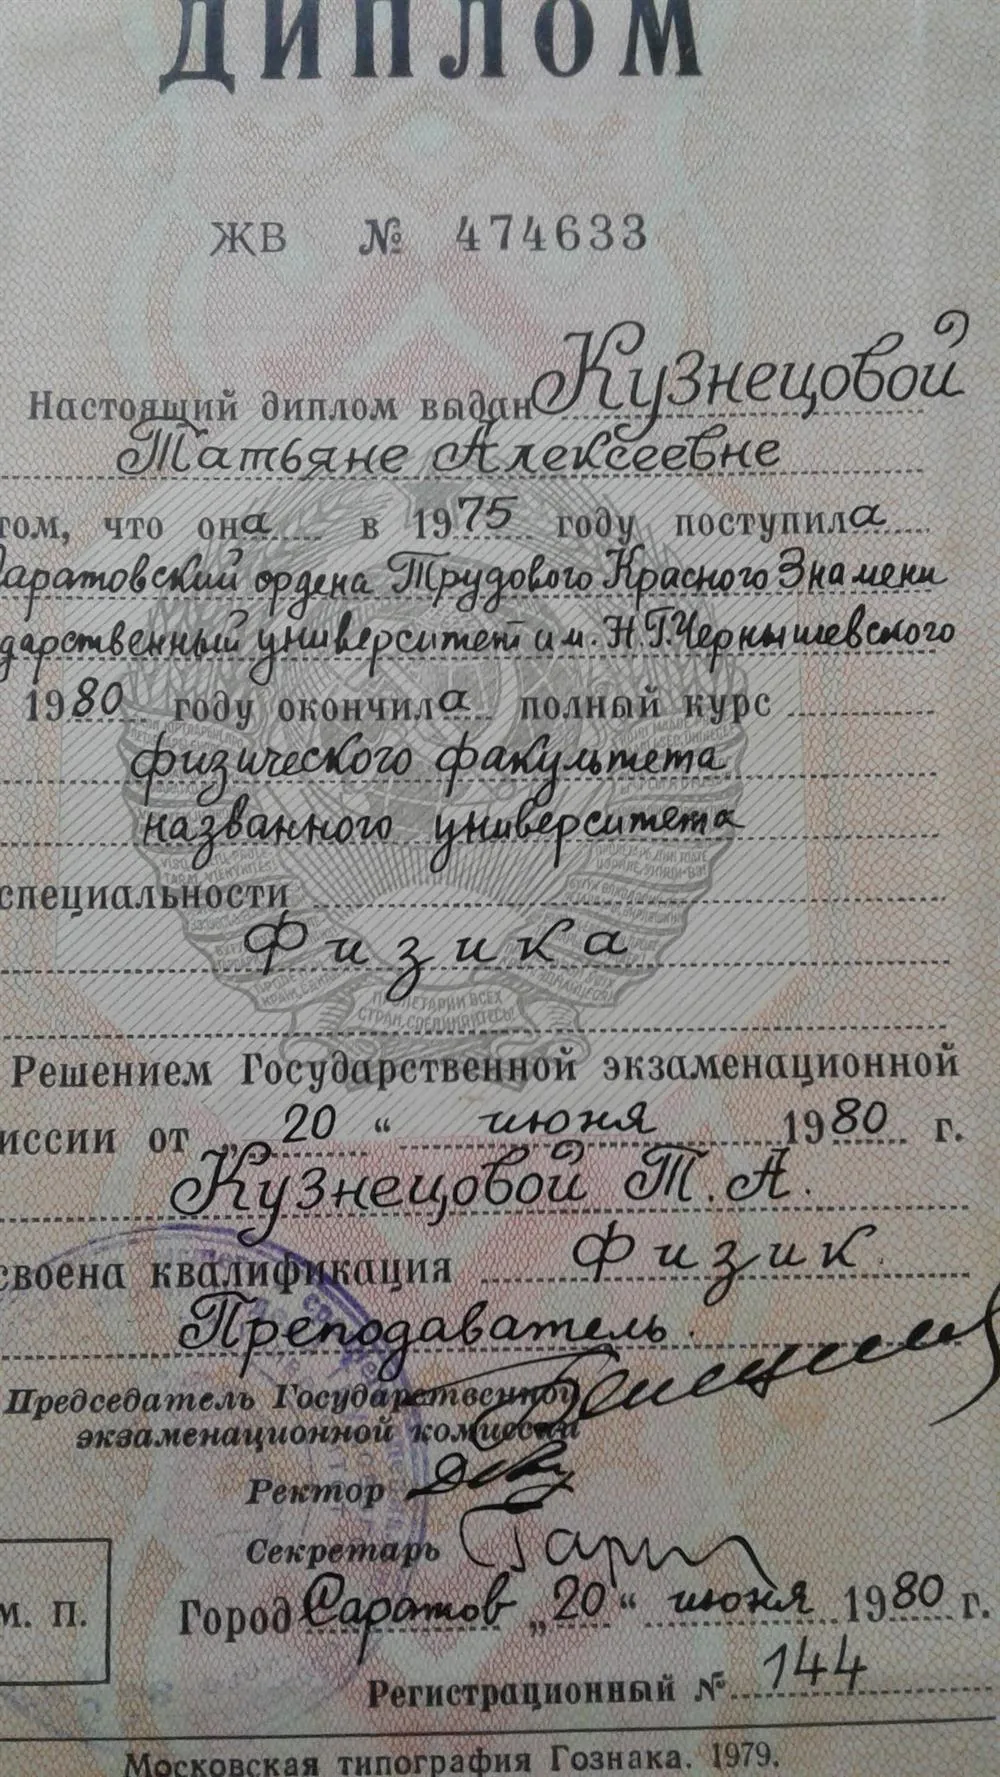 ДИПЛОМ
ЖВ № 474633
Настоящий диплом выдан Кузнецовой
Татьяне Алексеевне
том, что она в 1975 году поступила
Саратовский ордена Трудового Красного Знамени
дарственный университет им. Н.Г.Чернышевского
1980 году окончила полный курс
физического факультета
названного университета
специальности
Физика
ПРОЛЕТАРИИ ВСЕХ
СТРАН, СОЕДИНЯЙТЕСЬ!
Решением Государственной экзаменационной
миссии от „20“ июня 1980 г.
Кузнецовой Т. А.
своена квалификация Физик.
Преподаватель.
Председатель Государственной
экзаменационной комиссии
Ректор
Секретарь
М. П.
Город Саратов „20“ июня 1980 г.
Регистрационный № 144
Московская типография Гознака. 1979.